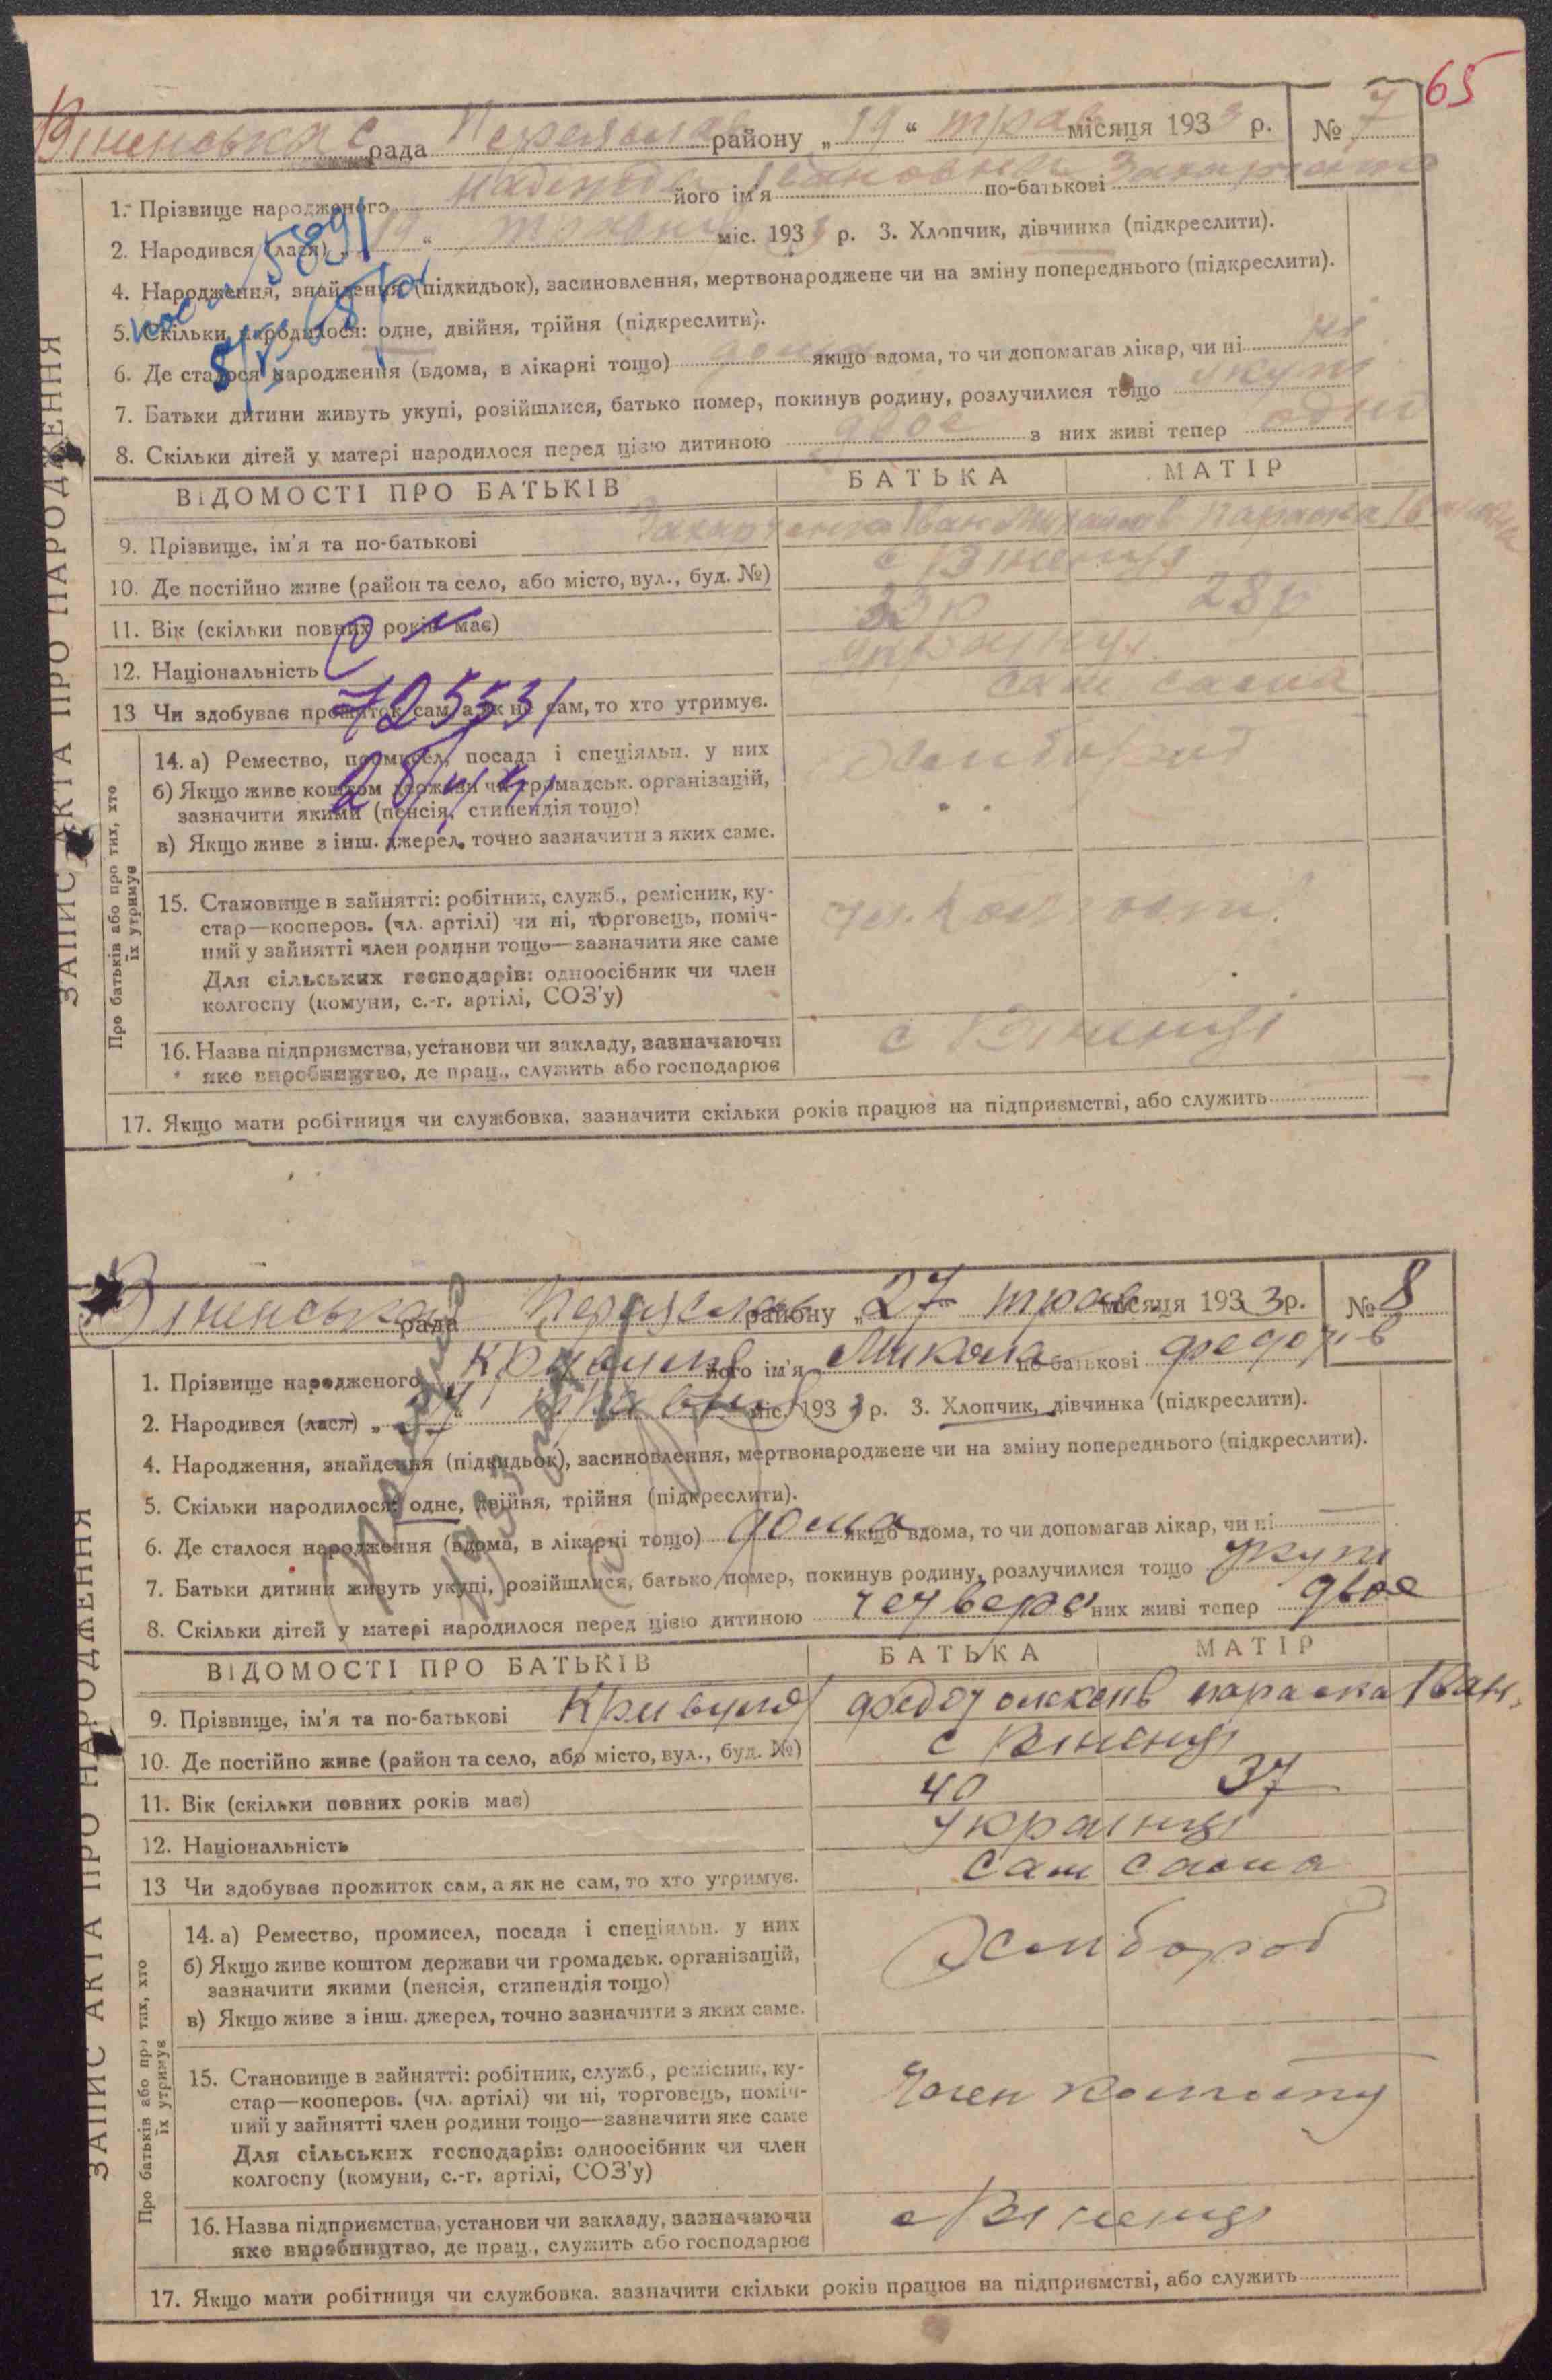 65
рада Переяслав району „19“ трав місяця 1933 р. № 7
1. Прізвище народженого Надежда його ім'я Івановна по-батькові
2. Народився (лася) „19“ міс. 193 р. 3. Хлопчик, дівчинка (підкреслити).
4. Народження, знайдення (підкидьок), засиновлення, мертвонароджене чи на зміну попереднього (підкреслити).
5. Скільки народилося: одне, двійня, трійня (підкреслити).
6. Де сталося народження (вдома, в лікарні тощо) дома якщо вдома, то чи допомагав лікар, чи ні ні
7. Батьки дитини живуть укупі, розійшлися, батько помер, покинув родину, розлучилися тощо укупі
8. Скільки дітей у матері народилося перед цією дитиною двое з них живі тепер одно
ЗАПИС АКТА ПРО НАРОДЖЕННЯ
ВІДОМОСТІ ПРО БАТЬКІВ БАТЬКА МАТІР
9. Прізвище, ім'я та по-батькові Захарченко Іван Параска
10. Де постійно живе (район та село, або місто, вул., буд. №) с Віненці
11. Вік (скільки повних років має) 28р
12. Національність
13 Чи здобуває прожиток сам, а як не сам, то хто утримує. сам сама
725531
Про батьків або про тих, хто їх утримує
14. а) Ремество, промисел, посада і спеціяльн. у них Хлибороб
б) Якщо живе коштом держави чи громадськ. організацій,
зазначити якими (пенсія, стипендія тощо)
в) Якщо живе з інш. джерел, точно зазначити з яких саме.
15. Становище в зайнятті: робітник, служб., ремісник, ку-
стар—кооперов. (чл. артілі) чи ні, торговець, поміч-
ний у зайнятті член родини тощо—зазначити яке саме
Для сільських господарів: одноосібник чи член
колгоспу (комуни, с.-г. артілі, СОЗ'у)
16. Назва підприємства, установи чи закладу, зазначаючи с Віненці
яке виробництво, де прац., служить або господарює
17. Якщо мати робітниця чи службовка, зазначити скільки років працює на підприємстві, або служить
рада Переяслав району „27 трав місяця 1933р. № 8
1. Прізвище народженого Кривуля його ім'я Микола по-батькові Федорів
2. Народився (лася) „ “ травня міс. 1933 р. 3. Хлопчик, дівчинка (підкреслити).
4. Народження, знайдення (підкидьок), засиновлення, мертвонароджене чи на зміну попереднього (підкреслити).
5. Скільки народилося: одне, двійня, трійня (підкреслити).
6. Де сталося народження (вдома, в лікарні тощо) дома якщо вдома, то чи допомагав лікар, чи ні
7. Батьки дитини живуть укупі, розійшлися, батько помер, покинув родину, розлучилися тощо укупі
8. Скільки дітей у матері народилося перед цією дитиною четверо з них живі тепер двое
ЗАПИС АКТА ПРО НАРОДЖЕННЯ
ВІДОМОСТІ ПРО БАТЬКІВ БАТЬКА МАТІР
9. Прізвище, ім'я та по-батькові Кривуля Федор параска Іван.
10. Де постійно живе (район та село, або місто, вул., буд. №) с Віненці
11. Вік (скільки повних років має) 40 37
12. Національність Украінці
13 Чи здобуває прожиток сам, а як не сам, то хто утримує. сам сама
Про батьків або про тих, хто їх утримує
14. а) Ремество, промисел, посада і спеціяльн. у них Хлибороб
б) Якщо живе коштом держави чи громадськ. організацій,
зазначити якими (пенсія, стипендія тощо)
в) Якщо живе з інш. джерел, точно зазначити з яких саме.
15. Становище в зайнятті: робітник, служб., ремісник, ку-
стар—кооперов. (чл. артілі) чи ні, торговець, поміч-
ний у зайнятті член родини тощо—зазначити яке саме Член
Для сільських господарів: одноосібник чи член
колгоспу (комуни, с.-г. артілі, СОЗ'у)
16. Назва підприємства, установи чи закладу, зазначаючи с Віненці
яке виробництво, де прац., служить або господарює
17. Якщо мати робітниця чи службовка, зазначити скільки років працює на підприємстві, або служить